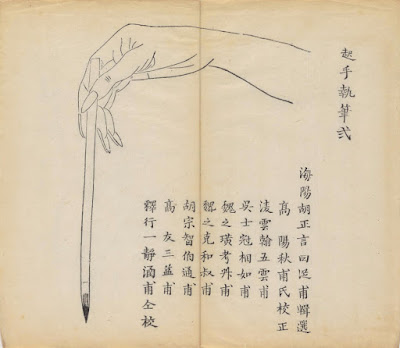 起手執筆式
海陽胡正言曰從甫輯選
高 陽秋甫氏校正
凌雲翰五雲甫
吳士冠相如甫
魏之璜考叔甫
魏之克和叔甫
胡宗智伯甫
高 友三益甫
釋行一靜涵甫仝校